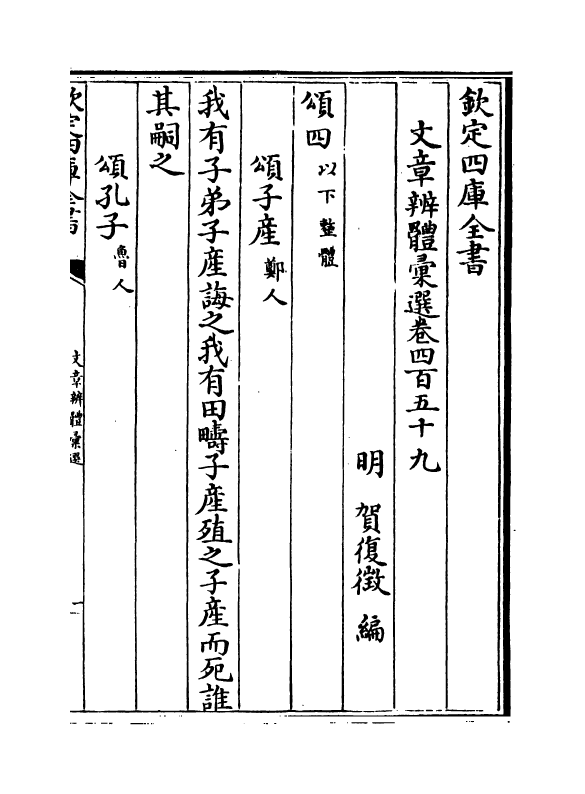 欽定四庫全書
文章辨體彙選卷四百五十九
明 賀復徵 編
頌四以下整體
頌子產鄭人
我有子弟子產誨之我有田疇子產殖之子產而死誰
其嗣之
頌孔子魯人
欽定四庫全書
文章辨體彙選
一